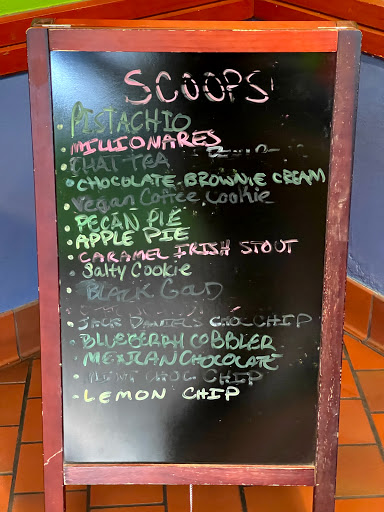 SCOOPS!
• PISTACHIO
• MILLIONARES
• CHAI TEA
• CHOCOLATE BROWNIE CREAM
• Vegan Coffee Cookie
• PECAN PIE
• APPLE PIE
• CARAMEL IRISH STOUT
• Salty Cookie
• BLACK GOLD
• JACK DANIEL'S CHOC CHIP
• BLUEBERRY COBBLER
• MEXICAN CHOCOLATE
• MINT CHOC CHIP
• LEMON CHIP